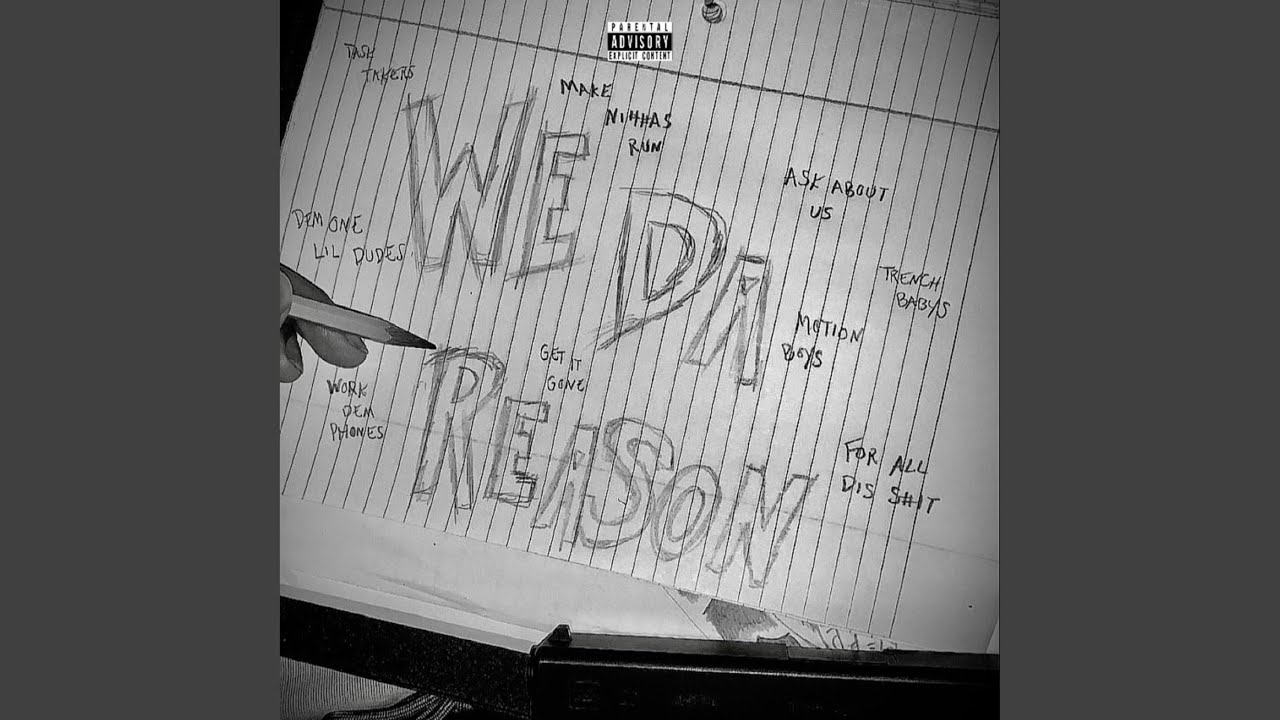 PARENTAL
ADVISORY
EXPLICIT CONTENT
TASK
TAKERS
MAKE
NIHHAS
RUN
WE
ASK ABOUT
US
DEM ONE
LIL DUDES
DA
TRENCH
BABYS
MOTION
BOYS
GET IT
GONE
WORK
DEM
PHONES
REASON
FOR ALL
DIS $#IT